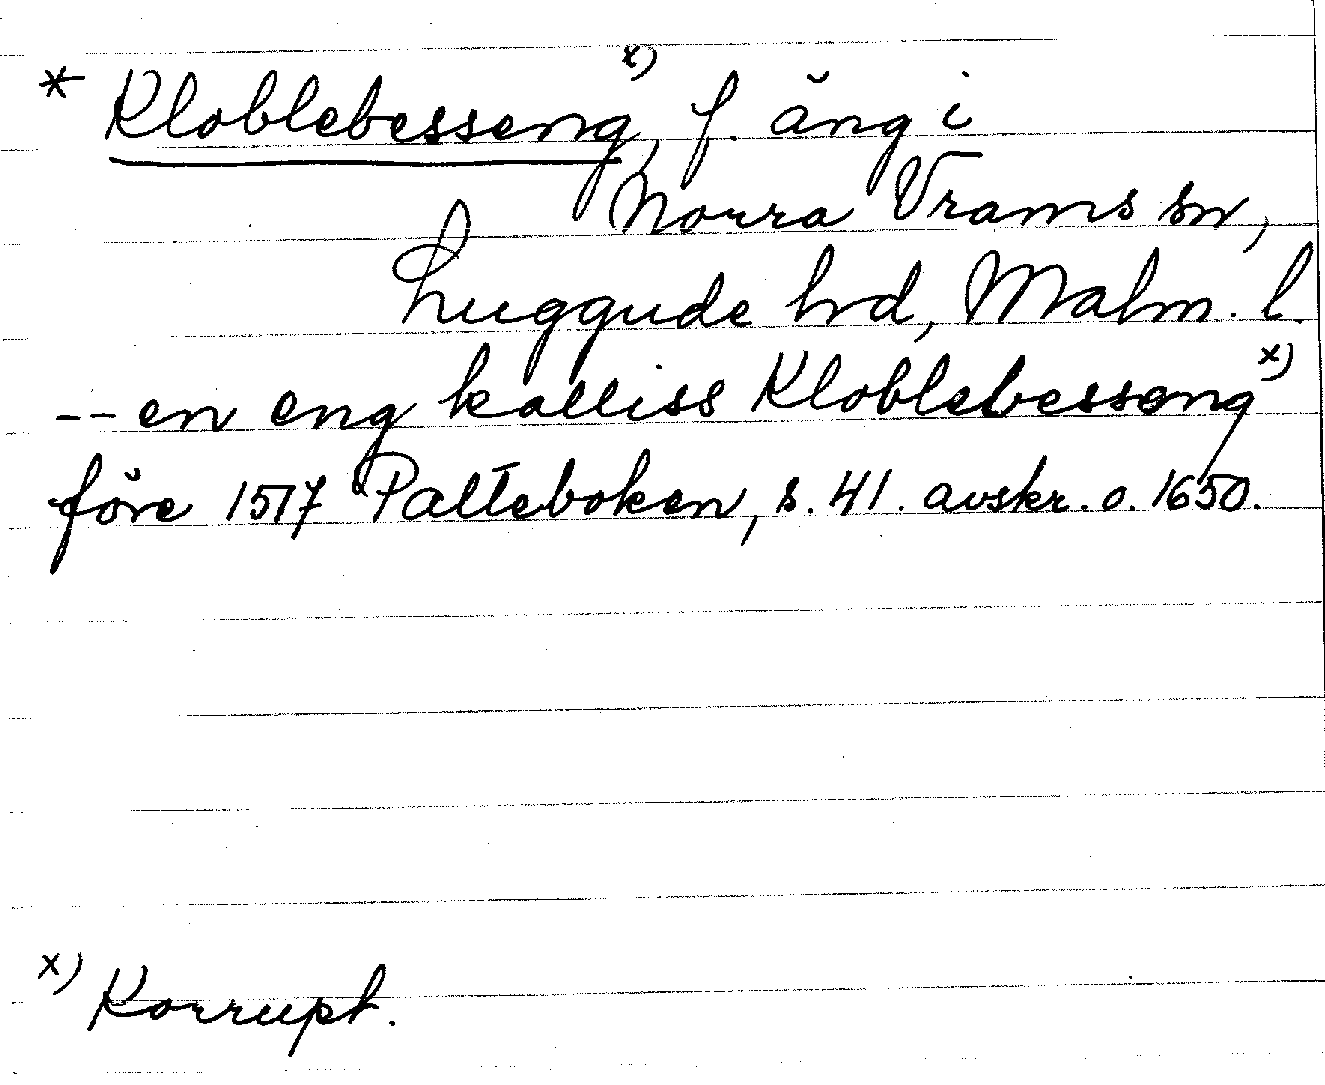 * Kloblebesseng x), f. äng i
Norra Vrams sn,
Luggude hd, Malm. l.
-- en eng kalliss Kloblebesseng x)
före 1517 Palteboken, s. 41. avskr. o. 1650.
x) Korrupt.